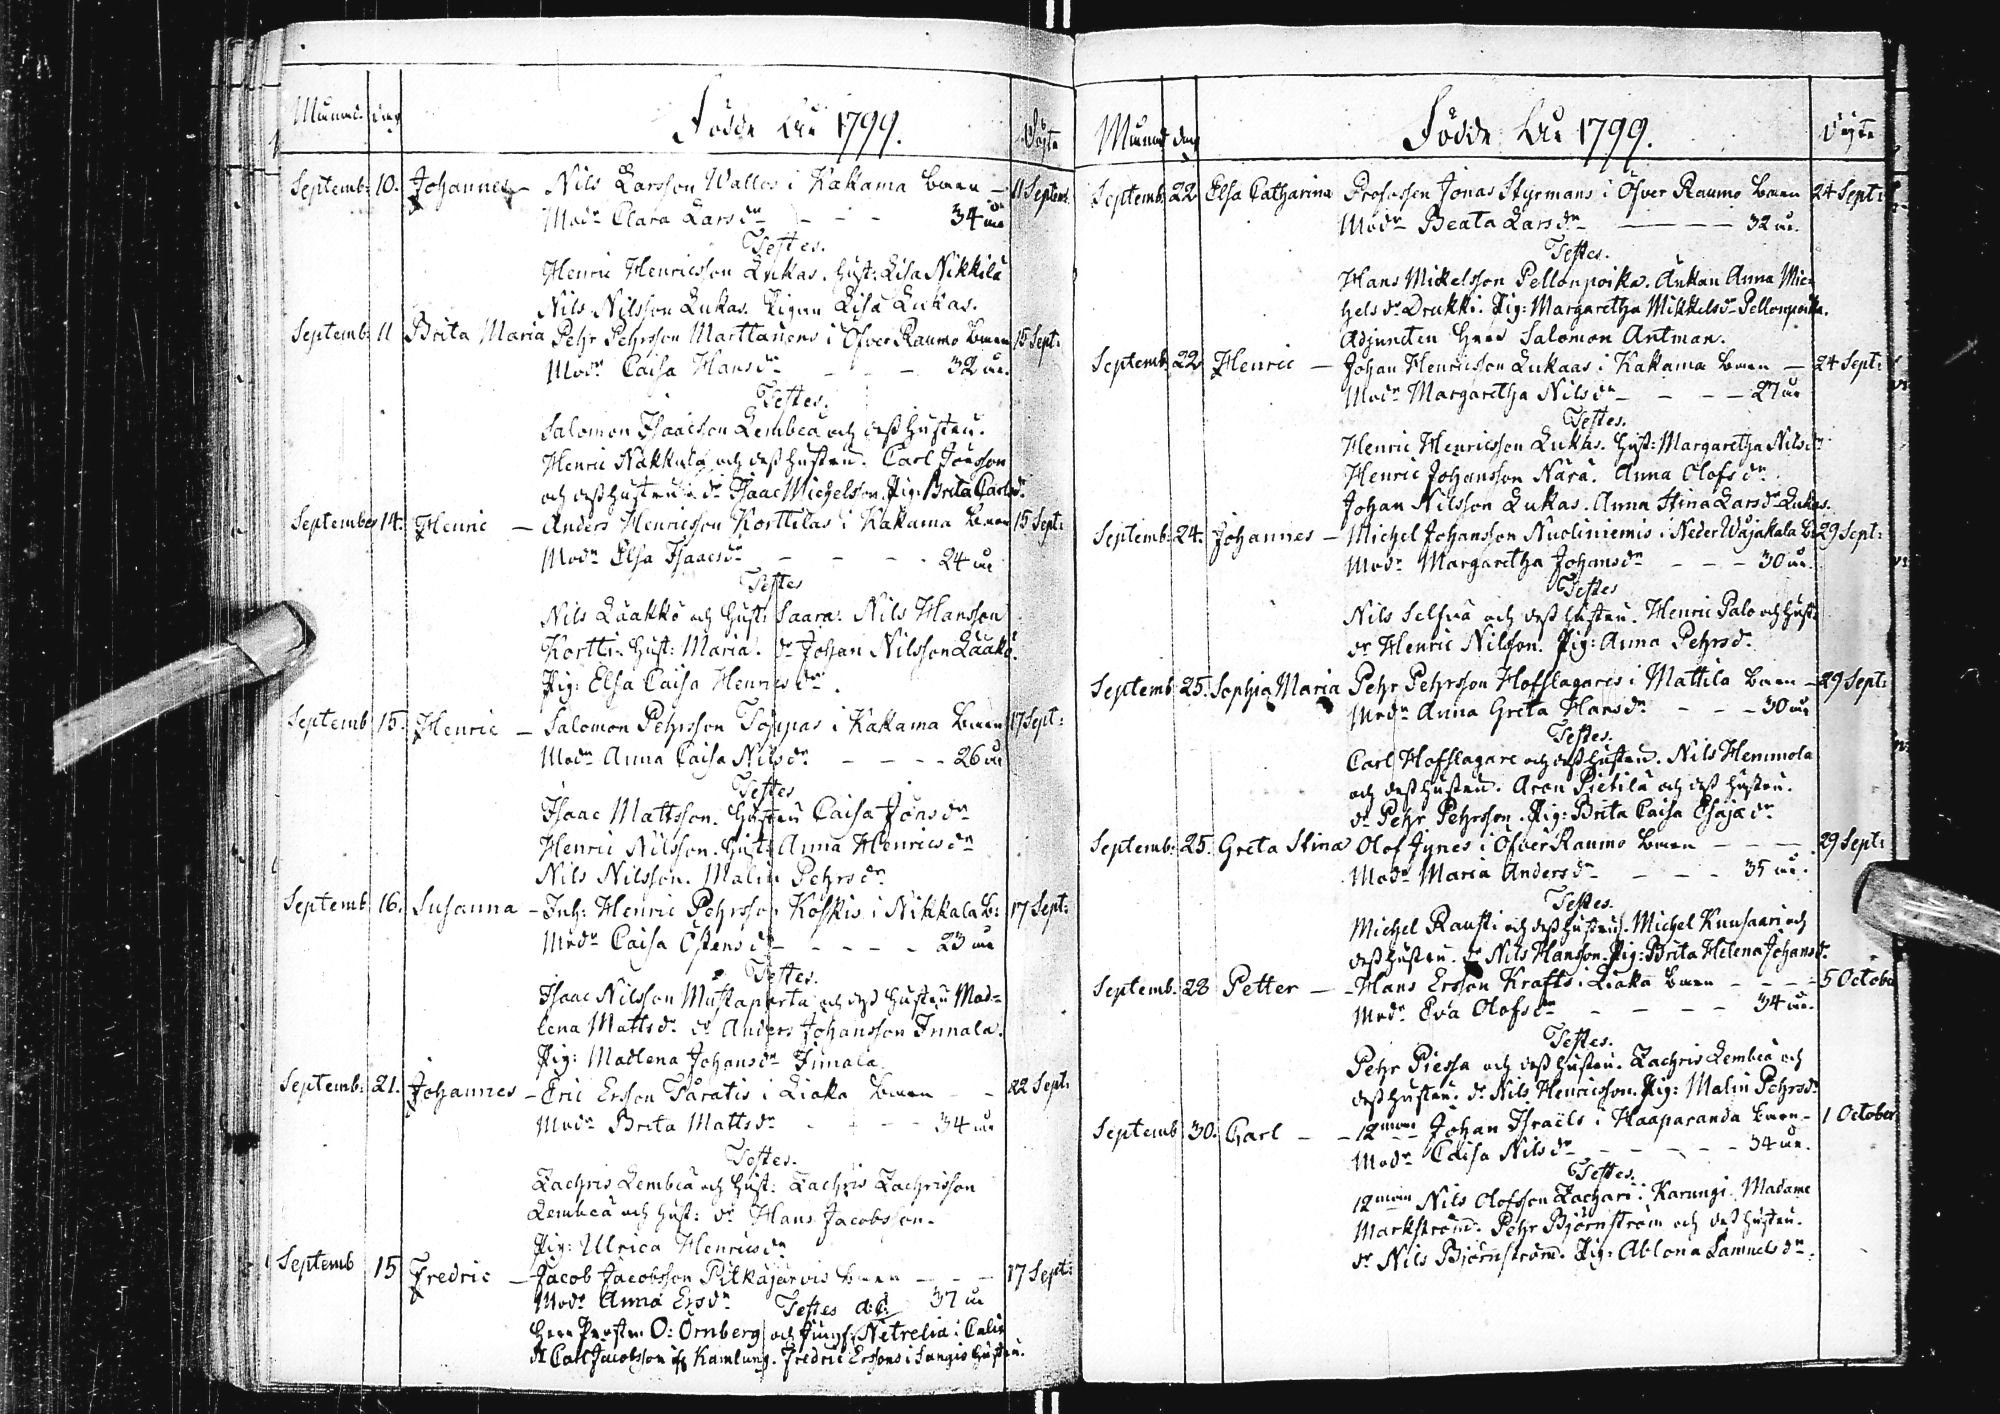 Månad. dag Födde År 1799. Döpte
Septemb: 10. Johannes – Nils Larsson Wallos i Kakama Barn – 11 Septem:
Modr Clara Larsdr – – – 34 år
Testes.
Henric Henricsson Lukas. Hust: Lisa Nikkilä
Nils Nilsson Lukas. Pigan Lisa Lukas.
Septemb: 11 Brita Maria Pehr Pehrsson Marttanens i Öfver Raumo Barn 15 Sept:
Modr Caisa Hansdr – – – 32 år.
Testes.
Salomon Isaacson Lembeä och dess hustru.
Henric Nakkula och dess hustru. Carl Jonsson
och dess hustru. dr Isaac Michelsson. Pig: Brita Carlsdr
September 14. Henric – Anders Henricsson Korttilas i Kakama Barn 15 Sept:
Modr Elsa Isaacsdr – – – 24 år
Testes
Nils Lääkkö och Hust: Saara. Nils Hansson
Kortti. Hust: Maria. dr Johan Nilsson Lääkö.
Pig: Elsa Caisa Henricsdr.
Septemb 15. Henric – Salomon Pehrsson Toppas i Kakama Barn 17 Sept:
Modr Anna Caisa Nilsdr – – – 26 år
Testes
Isaac Mattsson. Hustru Caisa Jönsdr
Henric Nilsson. Hust: Anna Henricsdr
Nils Nilsson. Malin Pehrsdr
Septemb 16. Susanna – Inh: Henric Pehrsson Koskis i Nikkala B: 17 Sept:
Modr Caisa Östensdr – – – 23 år
Testes.
Isaac Nilsson Mustaparta och dess hustru Mad=
lena Mattsdr. dr Anders Johansson Innala.
Pig: Madlena Johansdr Innala.
Septemb: 21. Johannes – Eric Ersson Taratis i Liaka Barn – – 22 Sept:
Modr Brita Mattsdr – – – 34 år
Testes.
Zachris Lembeä och Hust: Zachris Zachrisson
Lembeä och Hust: dr Hans Jacobsson.
Pig: Ulrica Henricsdr
Septemb 15 Fredric – Jacob Jacobsson Pitkäjärvis Barn – – – 17 Sept:
Modr Anna Ersdr Testes a: C: 37 år
Herr O: Örnberg och Jungf: Netrelia i Calix
dr Carl Jacobsson Kamlung. Fredric Erssons i Sangis Hustru.
Månad dag Födde År 1799. Döpte
Septemb: 22 Elsa Catharina Profossen Jonas Styrmans i Öfver Raumo Barn 24 Sept:
Modr Beata Larsdr – – – 32 år.
Testes.
Hans Mickelsson Pellonpoika. Änkan Anna Mic=
helsdr Drukki. Pig: Margaretha Mikkelsdr Pellonpoika.
Adjuncten Herr Salomon Antman.
Septemb: 22 Henric – Johan Henricsson Lukaas i Kakama Barn – 24 Sept:
Modr Margaretha Nilsdr – – – 27 år
Testes.
Henric Henricsson Lukas. Hust: Margaretha Nilsdr
Henric Johansson Nara. Anna Olofsdr
Johan Nilsson Lukas. Anna Stina Larsdr Lukas.
Septemb: 24. Johannes – Michel Johansson Nuoliniemis i Neder Wojakala B: 29 Sept:
Modr Margaretha Johansdr – – – 30 år.
Testes
Nils och dess hustru. Henric Palo och Hust:
dr Henric Nilsson. Pig: Anna Pehrsdr.
Septemb 25. Sophia Maria Pehr Pehrsson Hofslagares i Mattila Barn – 29 Sept:
Modr Anna Greta Hansdr – – – 30 år
Testes.
Carl Hofslagare och dess hustru. Nils Hemmola
och dess hustru. Aron Pietilä och dess hustru.
dr Pehr Pehrsson. Pig: Brita Caisa Esajædr
Septemb: 25. Greta Stina Olof Jynes i Öfver Raumo Barn – – – 29 Sept:
Modr Maria Andersdr – – – 35 år.
Testes.
Michel Rausti och dess hustru. Michel Kuusaari och
dess hustru. dr Nils Hansson. Pig: Brita Helena Johansdr
Septemb: 28 Petter – – Hans Ersson Krafts i Liaka Barn – – – 5 October
Modr Eva Olofsdr – – – 34 år.
Testes.
Pehr Piessa och dess hustru. Zachris Lembeä och
dess hustru. dr Nils Henricsson. Pig: Malin Pehrsdr
Septemb 30. Carl – – 12man Johan Israëls i Haaparanda Barn – 1 October
Modr Caisa Nilsdr – – – 34 år.
Testes.
12man Nils Olofsson Zachari i Karungi. Madame
Markström. Pehr Björnström och dess hustru.
dr Nils Björnström. Pig: Ablona Samuelsdr.